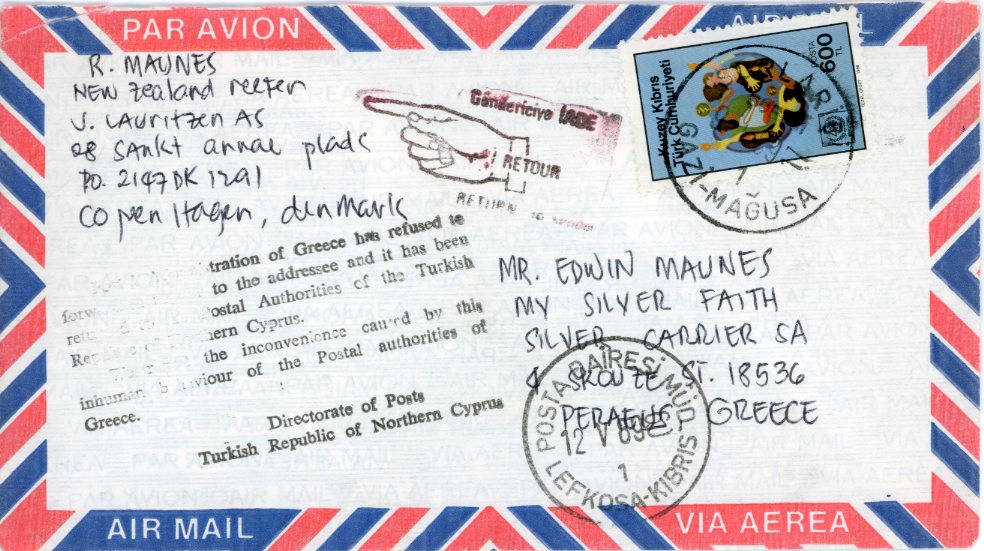 PAR AVION
AIR MAIL
R. MAUNES
NEW Zealand reefer
J. LAURITZEN AS
28 SANKT annae plads
PO. 2147 DK 1291
COPENHAGEN, denmark
Göndericiye İADE
RETOUR
RETURN to sender
Kuzey Kıbrıs
Türk Cumhuriyeti
POSTA
600
TL
GAZİ-MAĞUSA
tration of Greece has refused to
forw to the addressee and it has been
retu ostal Authorities of the Turkish
Rep ern Cyprus.
the inconvenience caused by this
inhuman b aviour of the Postal authorities of
Greece.
Directorate of Posts
Turkish Republic of Northern Cyprus
MR. EDWIN MAUNES
MY SILVER FAITH
SILVER CARRIER SA
SKOUZE ST. 18536
PERAEUS, GREECE
POSTA DAİRESİ MÜD.
12 V 89
1
LEFKOŞA-KIBRIS
AIR MAIL
VIA AEREA